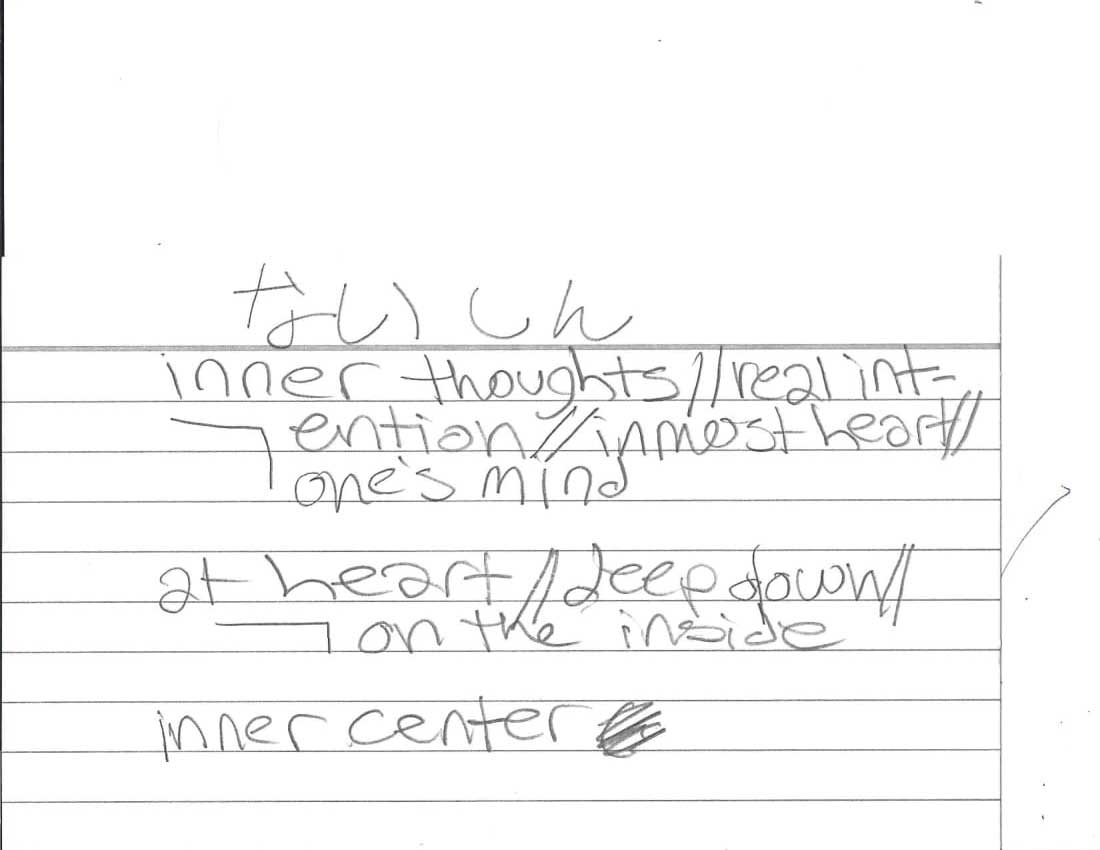 ないしん
inner thoughts//real int-
ention//inmost heart//
one's mind
at heart//deep down//
on the inside
inner center